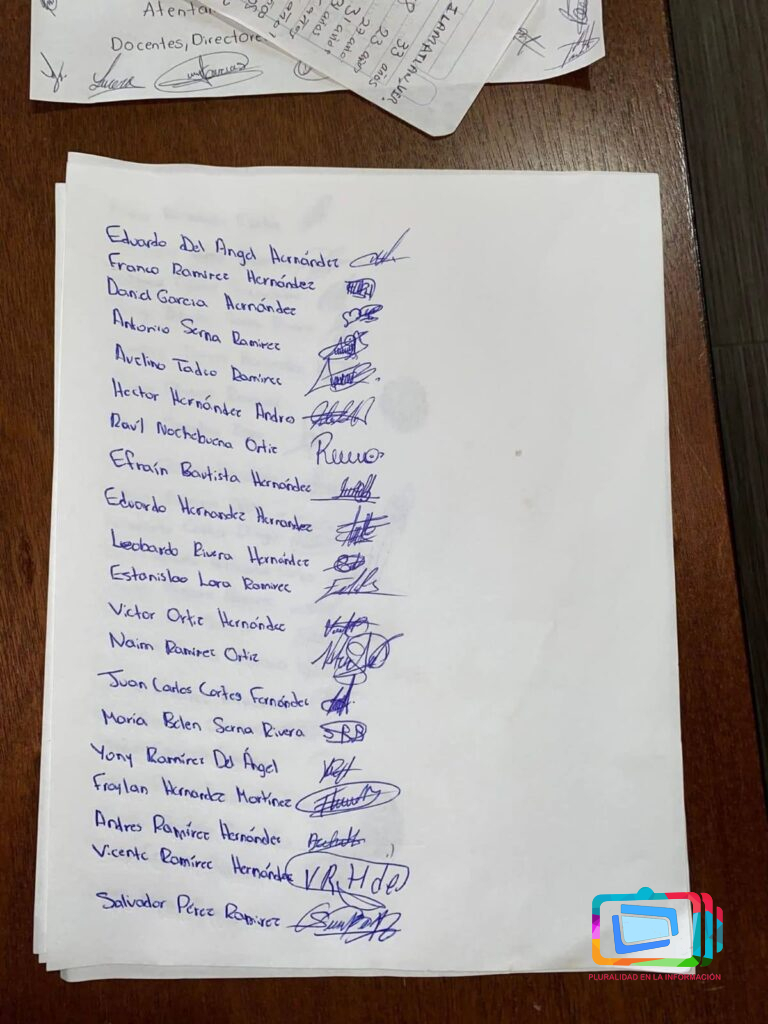 Atenta
Docentes, Directore
ILAMATLAN, VER.
33 años
23 años
27 años
31 años
Lucera
Eduardo Del Angel Hernández
Franco Ramirez Hernández
Daniel Garcia Hernández
Antonio Serna Ramirez
Avelino Tadeo Ramirez
Hector Hernández Andro
Raúl Nochebuena Ortiz
Efraín Bautista Hernández
Eduardo Hernandez Hernandez
Leobardo Rivera Hernández
Estanislao Lara Ramirez
Victor Ortiz Hernández
Naim Ramirez Ortiz
Juan Carlos Cortes Fernández
Maria Belen Serna Rivera SRB
Yony Ramírez Del Ángel
Froylan Hernandez Martínez
Andres Ramírez Hernández
Vicente Ramírez Hernández V R H de
Salvador Pérez Ramirez
PLURALIDAD EN LA INFORMACIÓN